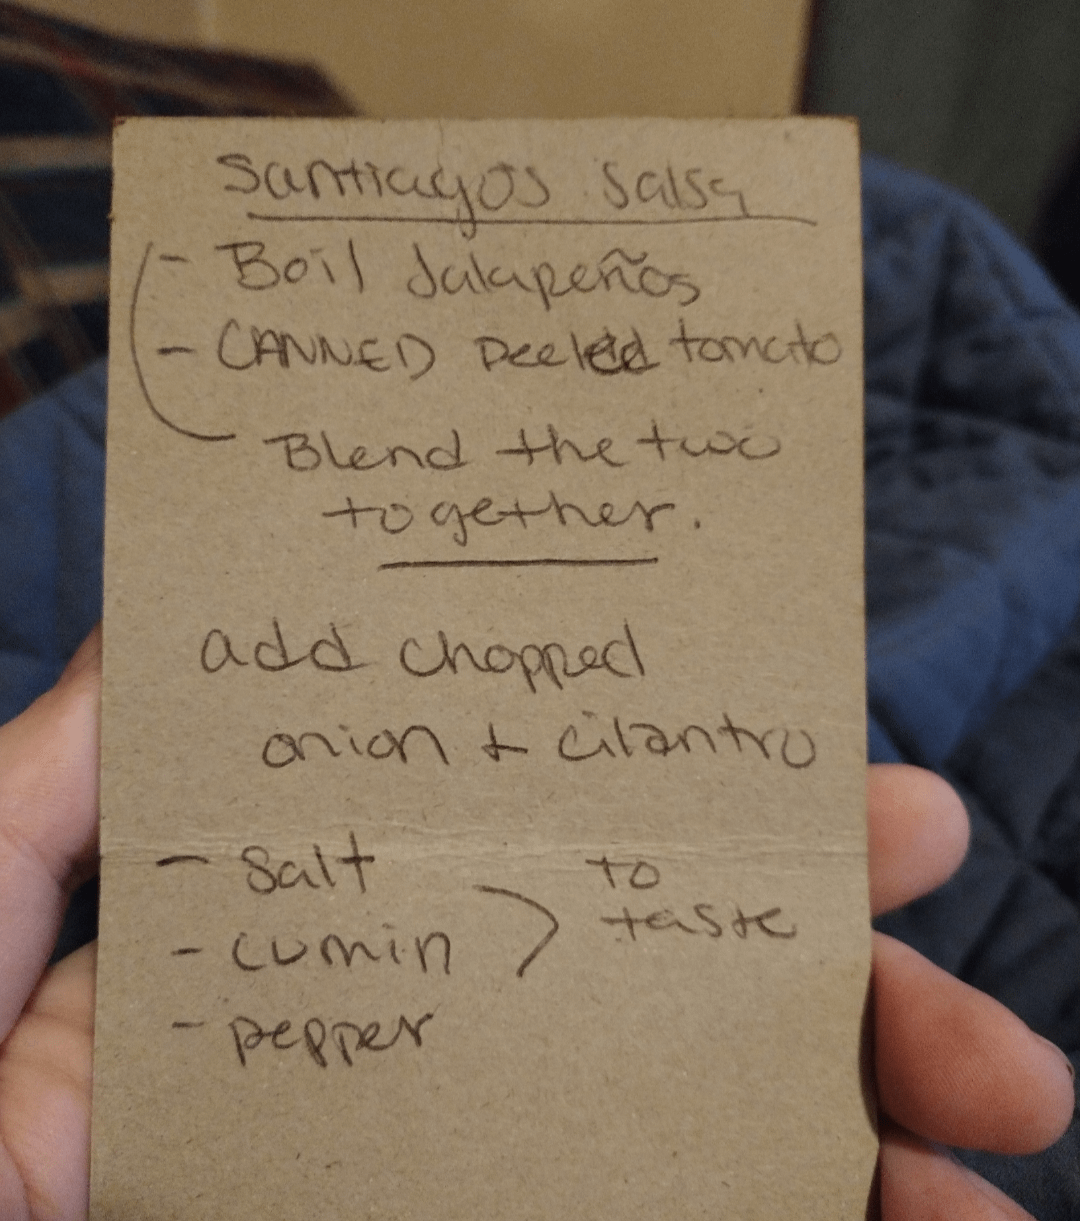 Santiagos Salsa
- Boil Jalapeños
- CANNED peeled tomato
Blend the two
together.
add chopped
onion + cilantro
- Salt
- cumin
- pepper
to
taste